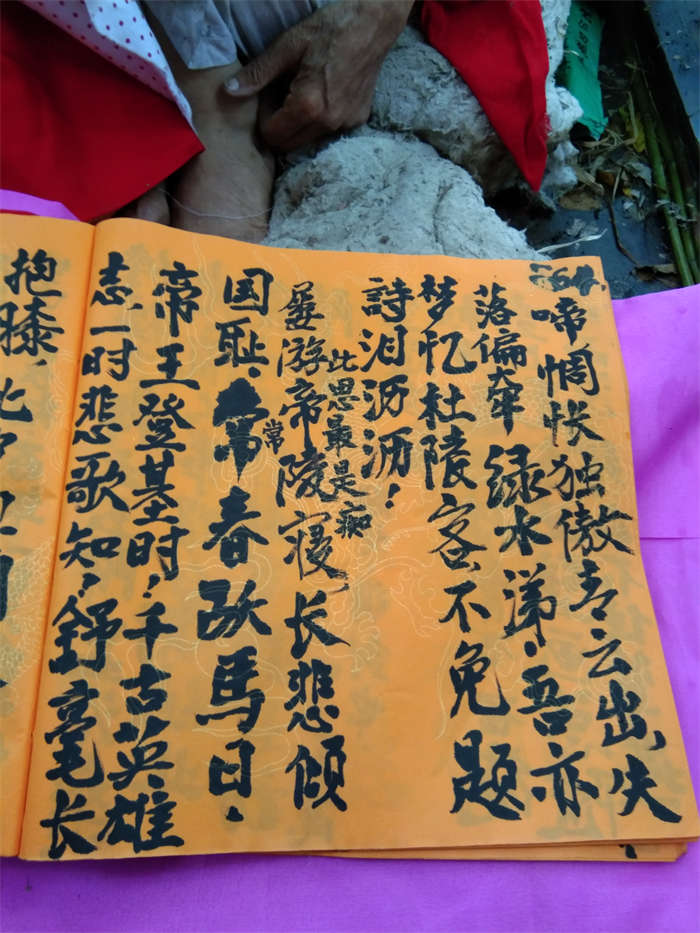 啼惆怅独傲青云出,失
落偏牵绿水涕,吾亦
梦忆杜陵客不免题
詩泪沥沥!
此恩最是痴
屡游帝陵寝,长悲倾
常
国耻,常春跃馬日.
帝王登基时!千古英雄
志,一时悲歌知!舒毫长
抱膝,